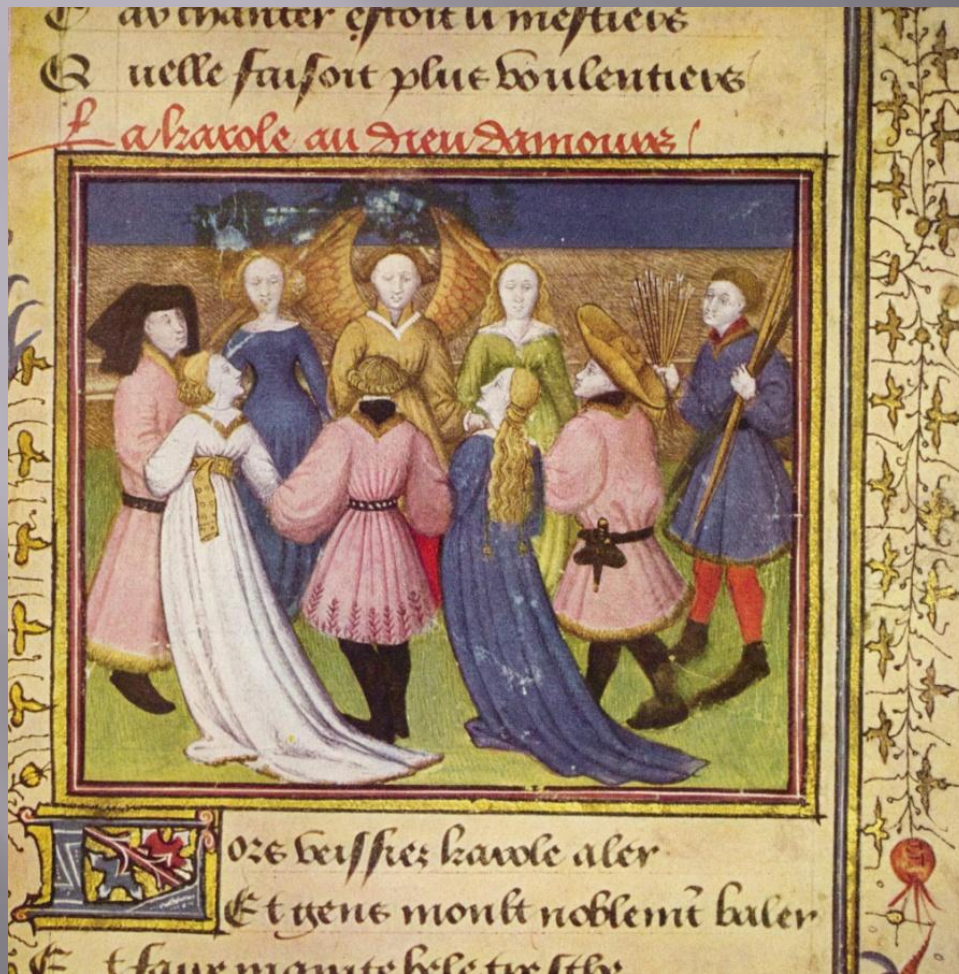 Car chanter estoit li mestiers
Quelle faisoit plus voulentiers
La karole au dieu damours
Lors veissiez karole aler
Et gens moult noblem̃t baler
Et faire mainte bele tresche